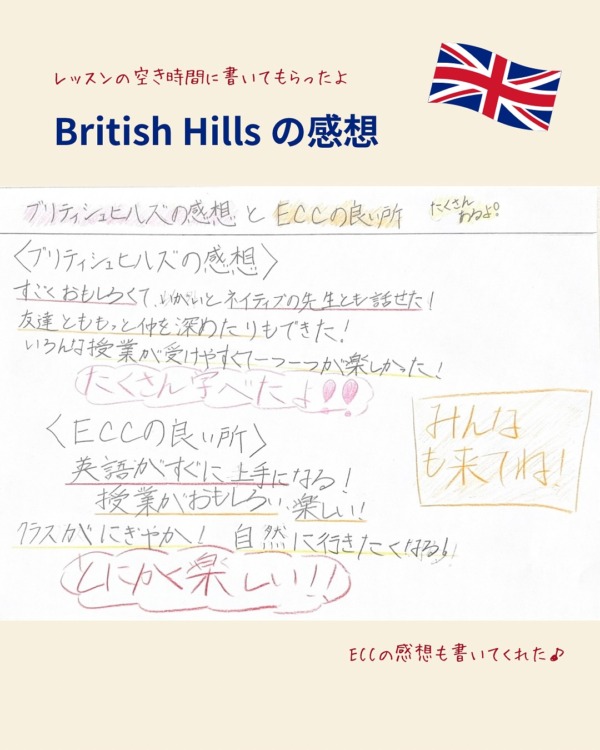 レッスンの空き時間に書いてもらったよ
British Hills の感想
ブリティシュヒルズの感想 と ECCの良い所 たくさん
あるよ!
〈ブリティシュヒルズの感想〉
すごくおもしろくて、いがいとネイティブの先生とも話せた!
友達とももっと仲を深めたりもできた!
いろんな授業が受けやすくて一つ一つが楽しかった!
たくさん学べたよ!!
〈ECCの良い所〉
英語がすぐに上手になる!
授業がおもしろい、楽しい!
クラスがにぎやか! 自然に行きたくなる!
とにかく楽しい!!
みんな
も来てね!
ECCの感想も書いてくれた♪